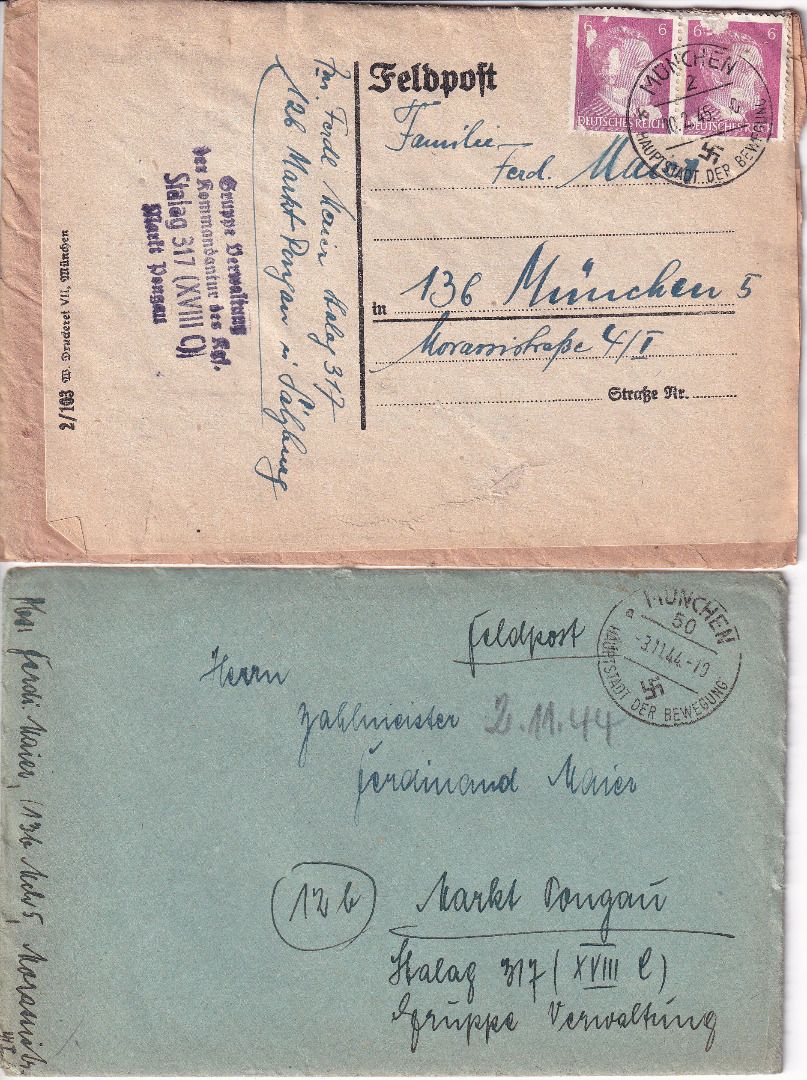 Feldpost
6 6
DEUTSCHES REICH DEUTSCHES REICH
MÜNCHEN
2
10.2.45
a
HAUPTSTADT DER BEWEGUNG
Familie
Ferd. Maier
in 136 München 5
Morassistraße 4/I
Straße Nr.
Ferdl Maier Stalag 317
12b Markt Pongau i/ Salzburg
Gruppe Verwaltung
der Kommandantur des Kgf.
Stalag 317 (XVIII C)
Markt Pongau
2/103 W. Druckerei VII, München
Feldpost
MÜNCHEN
50
a
-3.11.44.-10
HAUPTSTADT DER BEWEGUNG
Herrn
Zahlmeister 2.11.44
Ferdinand Maier
12b Markt Pongau
Stalag 317 (XVIII C)
Gruppe Verwaltung
Abs. Ferdl Maier, 13b Mch 5, Morassistr.
4/I